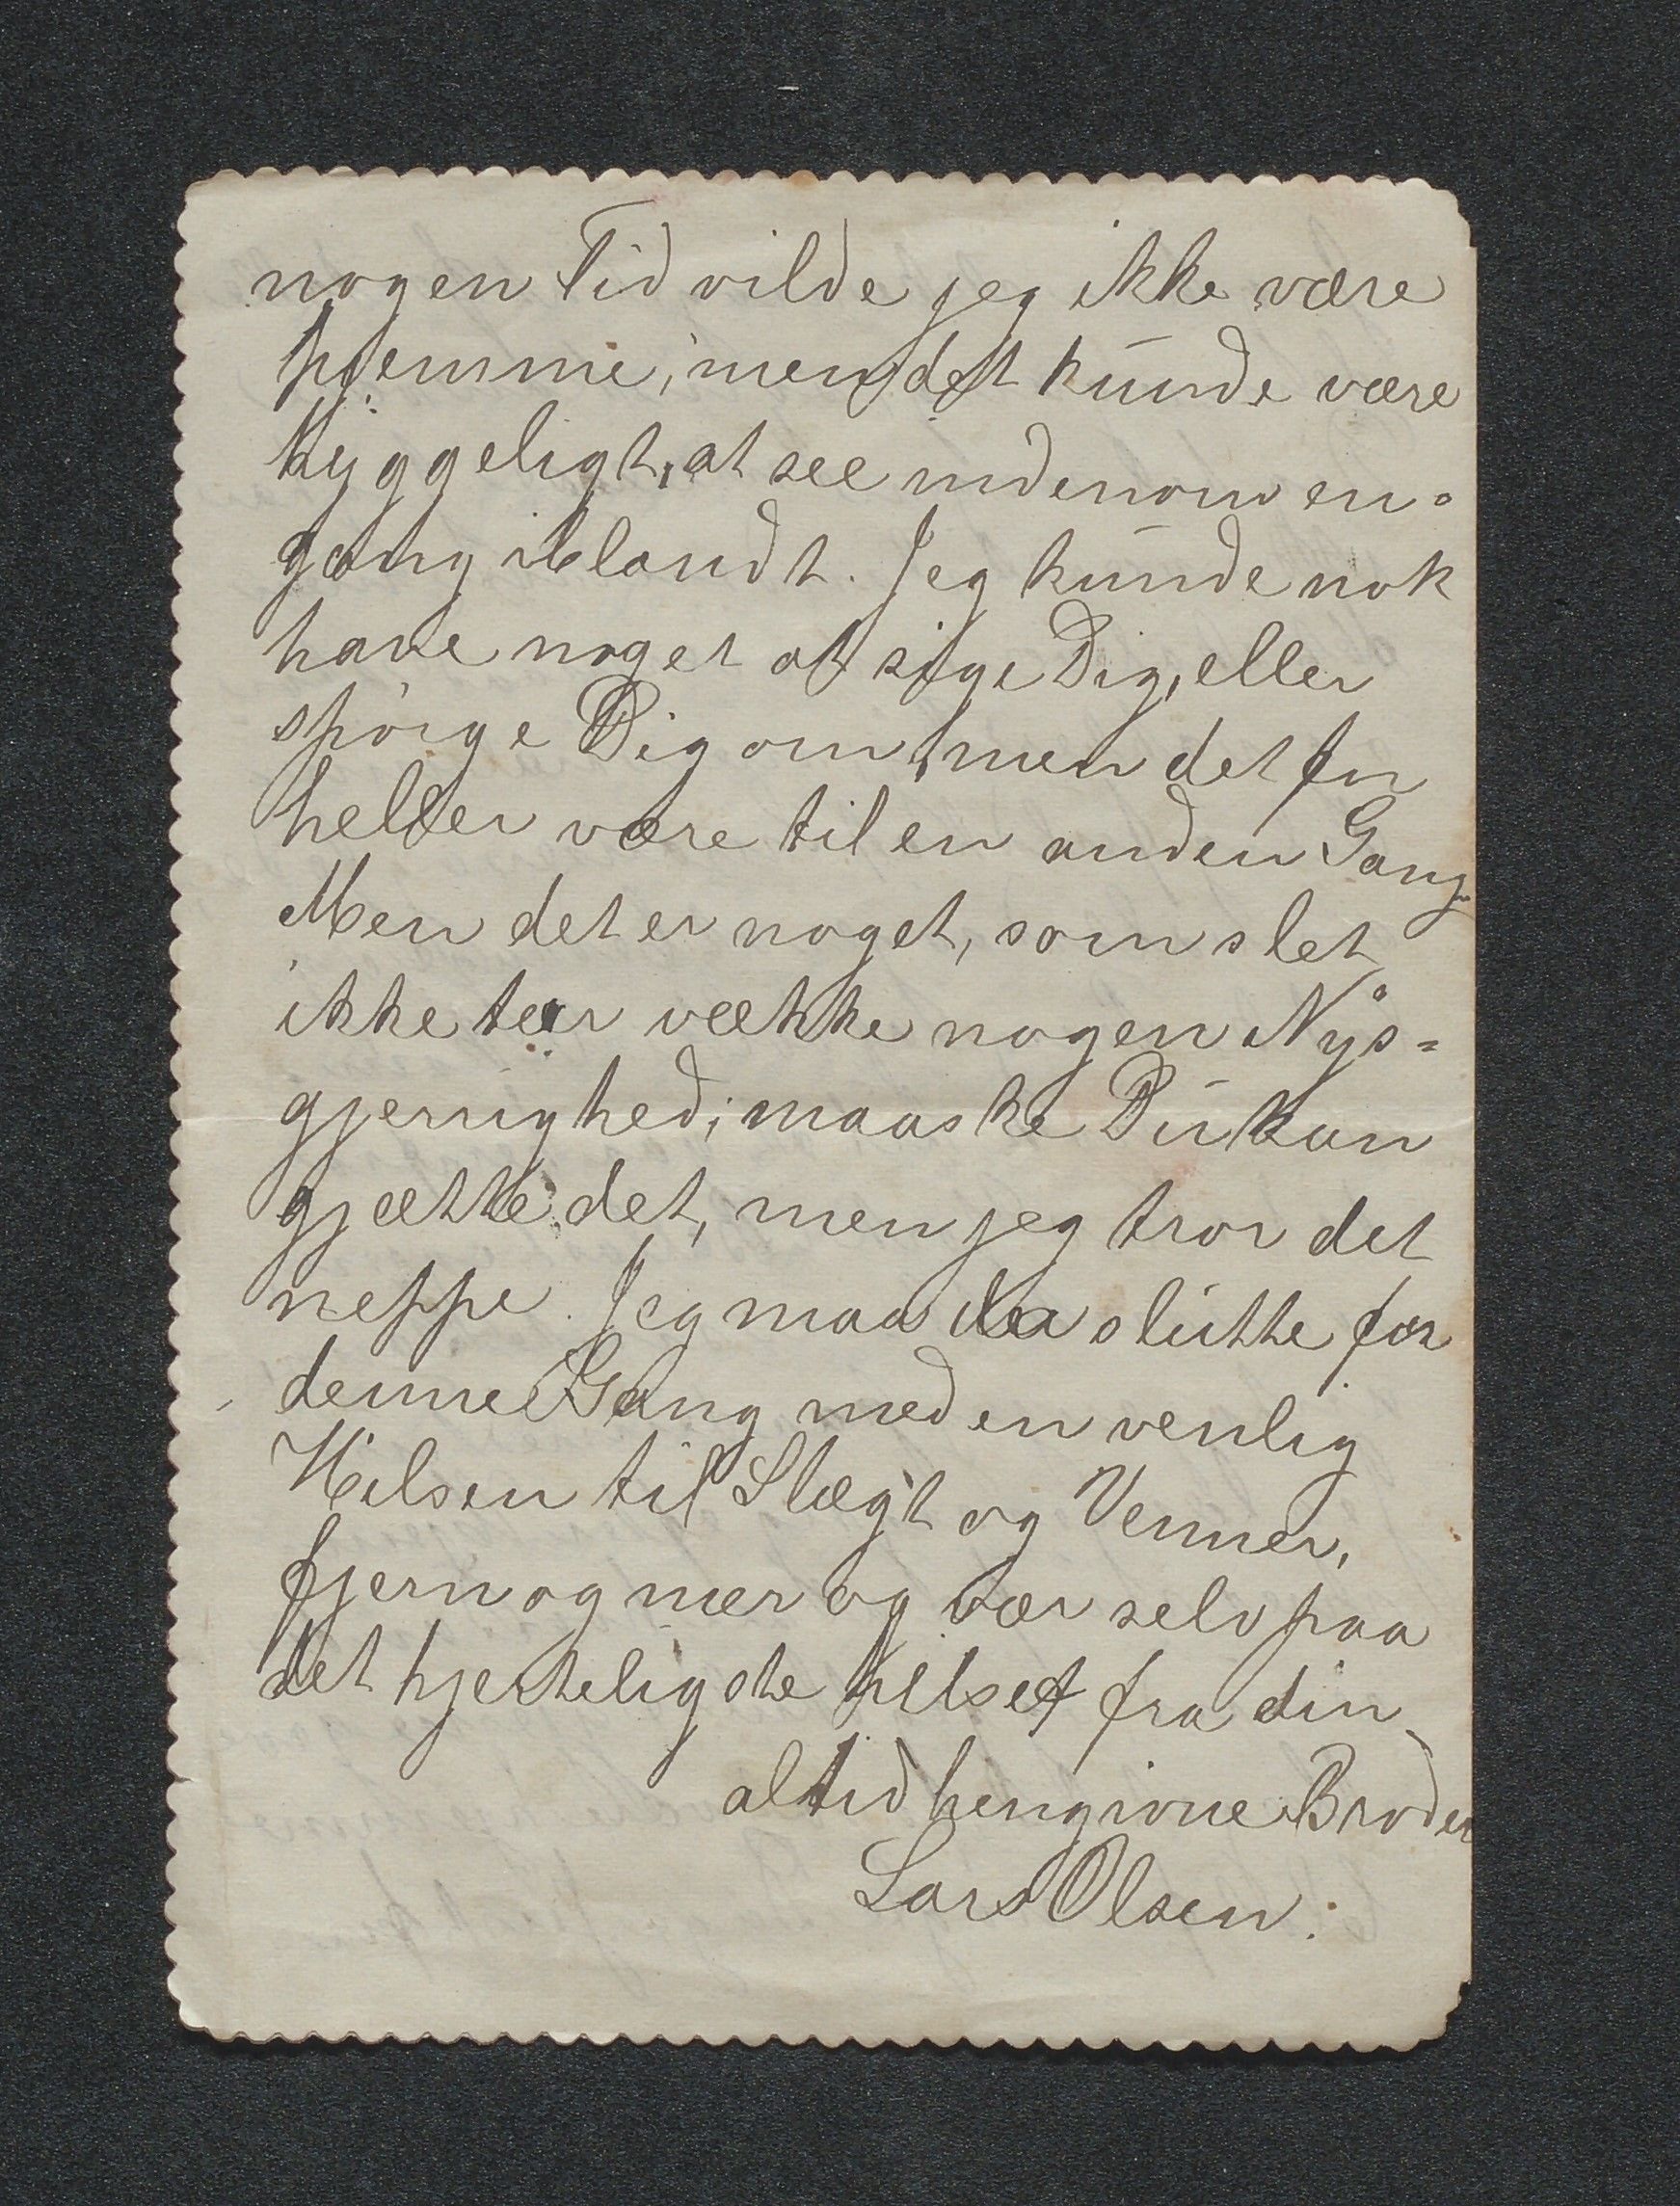 nogen Tid vilde jeg ikke være
hjemme, men det kunde være
hyggeligt, at see indenom en-
gang iblandt. Jeg kunde nok
have noget at sige Dig, eller
spørge Dig om, men det faar
heller være til en anden Gang.
Men det er noget, som slet
ikke tør vække nogen Nys=
gjerrighed; maaske Du kan
gjætte det, men jeg tror det
neppe. Jeg maa da slutte for
denne Gang med en venlig
Hilsen til Slægt og Venner,
fjern og nær og vær selv paa
det hjerteligste hilset fra din
altid hengivne Broder
Lars Olsen.